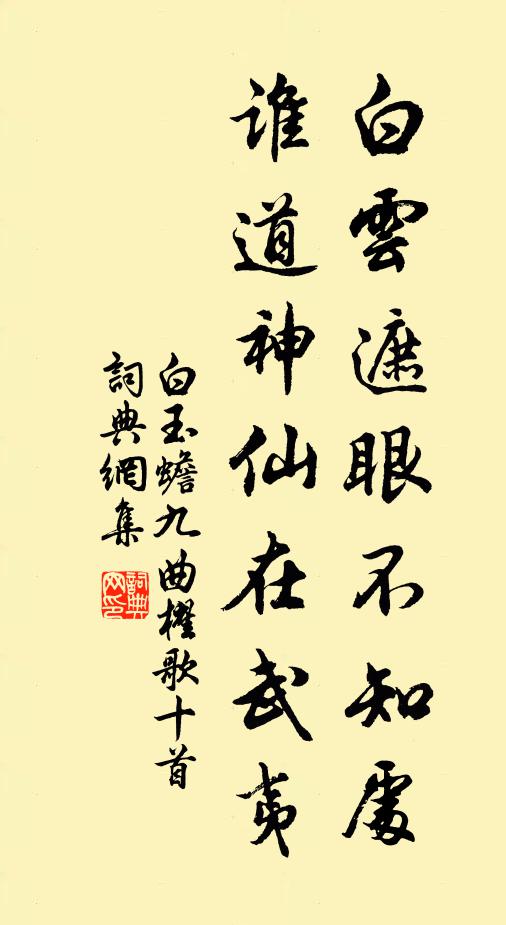 白雲遮眼不知處
誰道神仙在武夷
白玉蟾九曲櫂歌十首
詞典網集
詞典网印